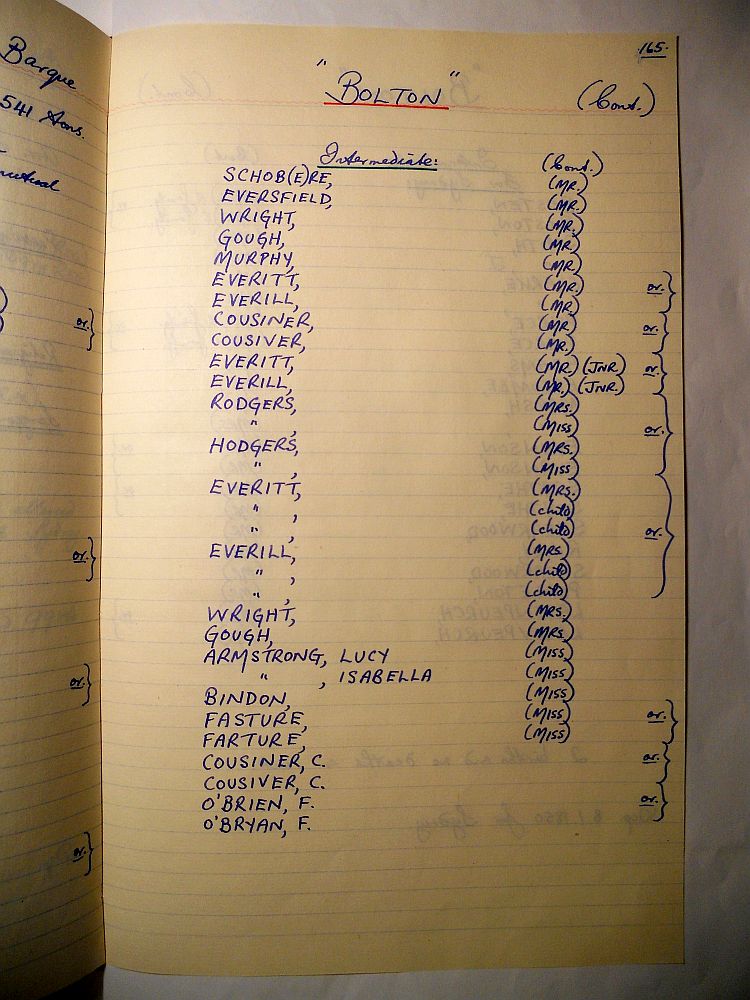 Barque
541 Tons.
or.
or.
or.
or.
165.
"BOLTON" (Cont.)
Intermediate: (Cont.)
SCHOB(E)RE, (MR.)
EVERSFIELD, (MR.)
WRIGHT, (MR.)
GOUGH, (MR.)
MURPHY, (MR.)
EVERITT, (MR.) or.
EVERILL, (MR.)
COUSINER, (MR.) or.
COUSIVER, (MR.)
EVERITT, (MR.) (JNR.) or.
EVERILL, (MR.) (JNR.)
RODGERS, (MRS.)
" , (MISS) or.
HODGERS, (MRS.)
" , (MISS)
EVERITT, (MRS.)
" , (child)
" , (child) or.
EVERILL, (MRS.)
" , (child)
" , (child)
WRIGHT, (MRS.)
GOUGH, (MRS.)
ARMSTRONG, LUCY (MISS)
" , ISABELLA (MISS)
BINDON, (MISS)
FASTURE, (MISS) or.
FARTURE, (MISS)
COUSINER, C. or.
COUSIVER, C.
O'BRIEN, F. or.
O'BRYAN, F.